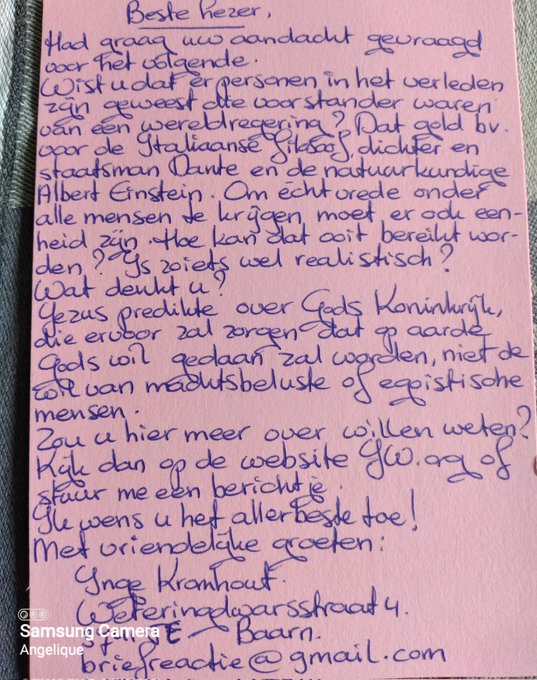 Beste Lezer,
Had graag uw aandacht gevraagd
voor het volgende.
Wist u dat er personen in het verleden
zijn geweest die voorstander waren
van een wereldregering? Dat geld bv.
voor de Italiaanse filosoof, dichter en
staatsman Dante en de natuurkundige
Albert Einstein. Om echt vrede onder
alle mensen te krijgen, moet er ook een-
heid zijn. Hoe kan dat ooit bereikt wor-
den? Is zoiets wel realistisch?
Wat denkt u?
Jezus predikte over Gods Koninkrijk,
die ervoor zal zorgen dat op aarde
Gods wil gedaan zal worden, niet de
wil van machtsbeluste of egoistische
mensen.
Zou u hier meer over willen weten?
Kijk dan op de website JW.org of
stuur me een berichtje.
Ik wens u het allerbeste toe!
Met vriendelijke groeten:
Inge Kromhout.
Weteringdwarsstraat 4.
Baarn.
briefreactie@gmail.com
Samsung Camera
Angelique